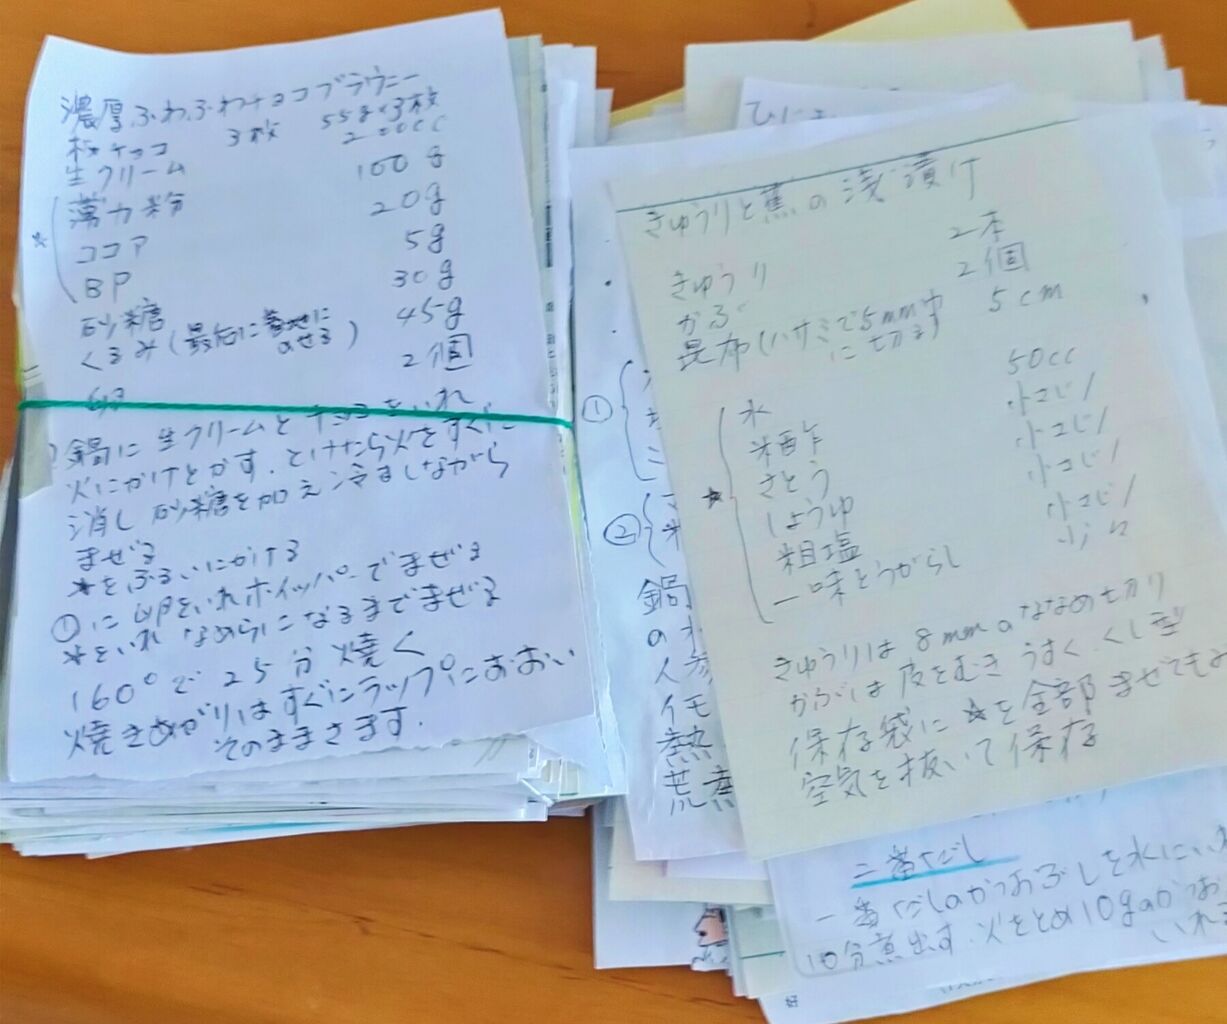 濃厚ふわふわチョコブラウニー
板チョコ 3枚 55g×3枚
生クリーム 200cc
薄力粉 100g
☆ ココア 20g
BP 5g
砂糖 30g
くるみ(最后に 生地に のせる) 45g
卵 2個
鍋に生クリームとチョコをいれ
火にかけとかす。とけたら火をすぐに
消し 砂糖を加え冷ましながら
まぜる
☆をふるいにかける
①に卵をいれホイッパーでまぜる
☆をいれなめらになるまでまぜる
160°で25分焼く
焼きあがりはすぐにラップにおおい
そのままさます.
ひじ
きゅうりと蕉の浅漬け
きゅうり 2本
かぶ 2個
昆布(ハサミで5mm巾に切る) 5cm
水 50cc
米酢 小さじ1
☆ さとう 小さじ1
しょうゆ 小さじ1
粗塩 小さじ1
一味とうがらし 少々
きゅうりは8mmのななめ切り
かぶは皮をむきうすくくし型
保存袋に☆を全部まぜてもみ
空気を抜いて保存
①
②
鍋
の
人参
イモ
熱
荒煮
二番だし
一番だしのかつおぶしを水にいれ
10分煮出す.火をとめ10gのかつお
いれる